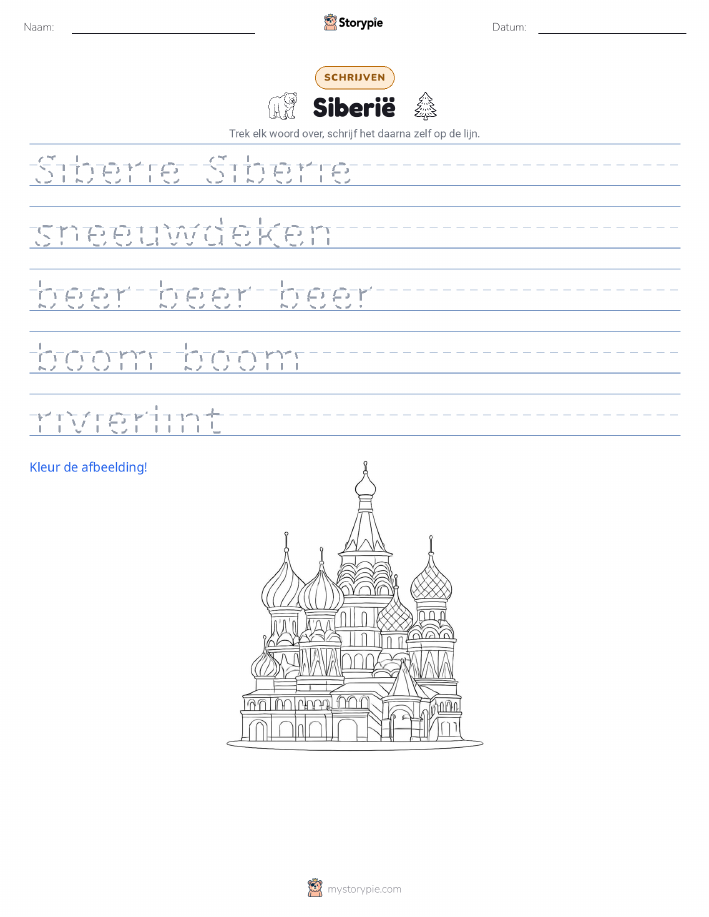 Naam: Storypie Datum:
SCHRIJVEN
Siberië
Trek elk woord over, schrijf het daarna zelf op de lijn.
Siberie Siberie
sneeuwdeken
beer beer beer
boom boom
rivierlint
Kleur de afbeelding!
mystorypie.com